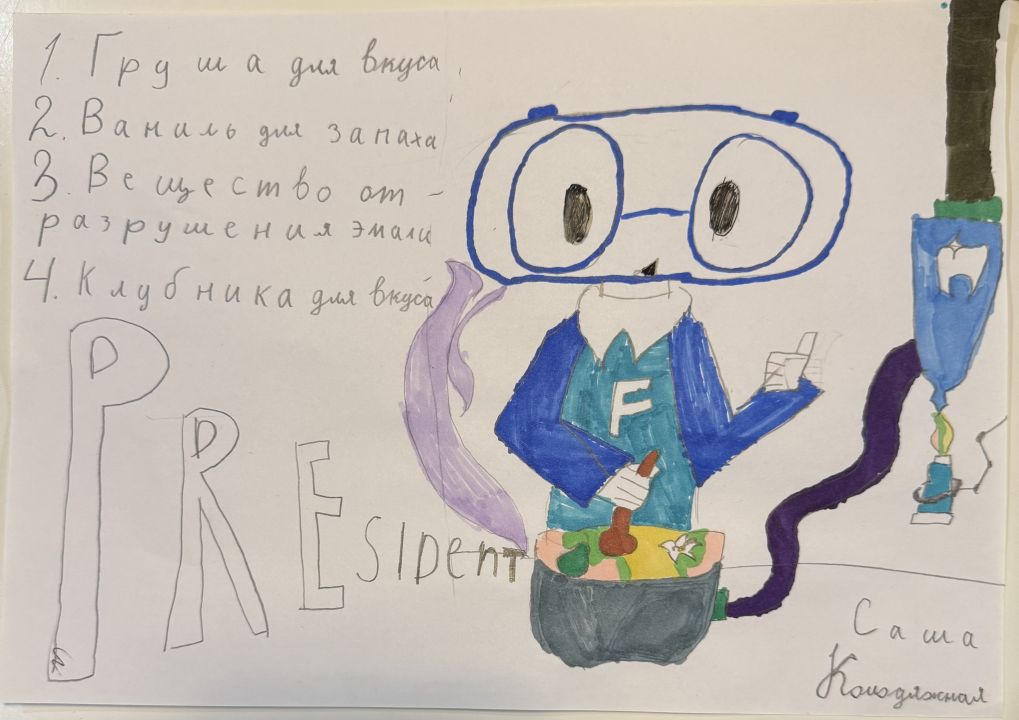 1. Груша для вкуса
2. Ваниль для запаха
3. Вещество от-
разрушения эмали
4. Клубника для вкуса
PRESIDENT
F
Саша